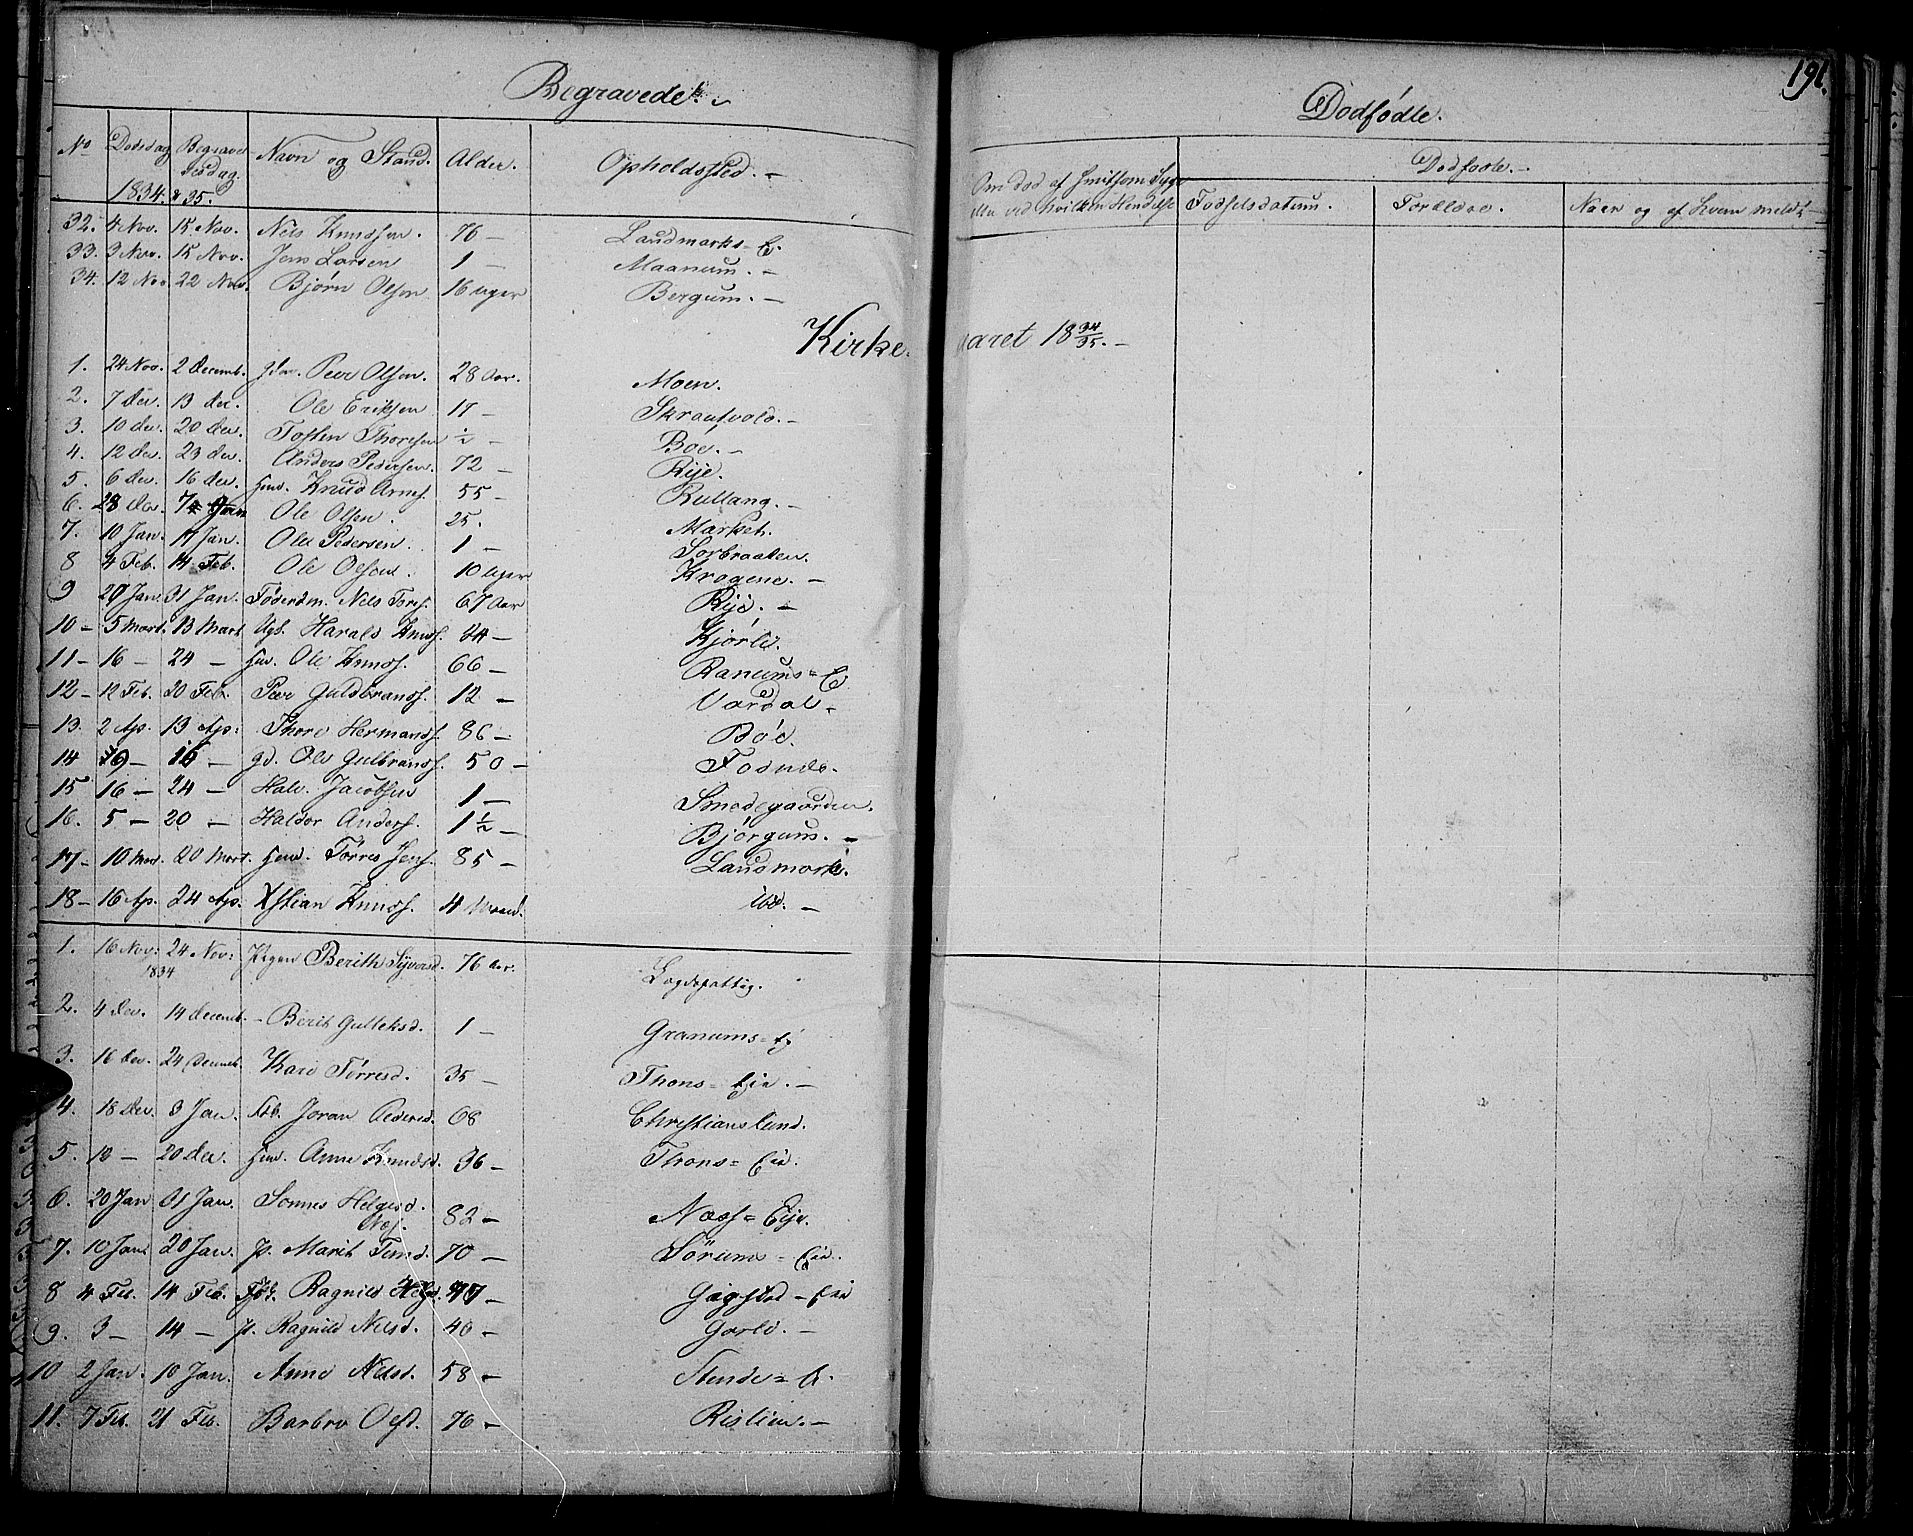 191.
Begravede.
Dødfødte.
No Dødsdag Begravelsesdag Navn og Stand. Alder. Opholdssted. -
1834. & 35.
Om død af Smitsom Syge eller ved hvilken Hendelse
Dødfødte. -
Fødselsdatum. Forældre. Naar og af hvem meldt -
32. 4 Nov. 15 Nov. Nils Knudsen. 76 - Landmarks=E.
33. 3 Nov. 15 Nov. Jens Larsen 1 - Maanum. -
34. 12 Nov. 22 Nov. Bjørn Olsen 16 uger Bergum. -
Kirkeaaret 18 34/35. -
1. 24 Nov. 2 Decemb. Peer Olsen. 28 Aar. Moen.
2. 7 Dec. 13 Dec. Ole Eriksen 17 - Skrautvold. -
3. 10 Dec. 20 Dec. Tosten Thoresen ½ - Boe. -
4. 12 Dec. 23 Dec. Anders Pedersen. 72 - Rije.
5. 6 Dec. 16 Dec. Knud Arnes. 55 - Rullang. -
6. 28 Dec. 7 Jan Ole Olsen. 25. Market.
7. 10 Jan. 17 Jan. Ole Pedersen. 1 - Sorbraaten.
8 4 Feb. 14 Feb. Ole Olsen. 10 Uger Krogene. -
9 20 Jan. 31 Jan. Føderdm. Nils Tores. 67 Aar Rije. -
10 - 5 Mart. 13 Mart Ugs. Harald Knuds. 24 - Kjørli.
11 - 16 - 24 - Ole Knuds. 66 - Ranums=E
12 - 12 Feb. 20 Feb. Peer Guldbrands. 12 - Vardal -
13. 2 Ap. 13 Ap: Thore Hermands. 86 - Bøe.
14 - 16 - gd. Ole Gulbrands. 50 - Fosnes.
15 16 - 24 - Halv. Jacobsen 1 - Smedegaarden.
16. 5 - 20 - Haldor Anders. 1½ - Bjørgum. -
17 - 10 Mart. 20 Mart. Tørres Jens. 85 - Landmark.
18 - 16 Ap. 24 Ap. Xstian Knuds. 4 Maand. ibd. -
1. 16 Nov: 24 Nov: Pigen Berith Syversd. 76 Aar. Lægdsfattig.
1834
2. 4 Dec. 14 Decemb. - Berit Gulleksd. 1 - Granums=Ej
3. 16 Dec. 24 Decemb. Kari Tørresd. 35 - Thons=Eie. -
4. 18 Dec. 3 Jan. Joran Pedersd. 68 Christianslund.
5. 10 - 20 Dec. Anne Knudsd. 36 - Thons=Eie.
6. 20 Jan 31 Jan. Sonnev Helgesd. 82 - Næss=Eije.
7. 10 Jan. 20 Jan. p. Marit 70 - Sörum=Eie.
8 4 Feb. 14 Feb. Ragnild 77 - Gigstad-Eie
9. 3 - 14 - p. Ragnild Nilsd. 40 - Garli. -
10 2 Jan. 10 Jan. Anne Nilsd. 58 - Stende=E.
11. 7 Feb. 21 Feb. Barbro Olsd. 76 - Rislien. -